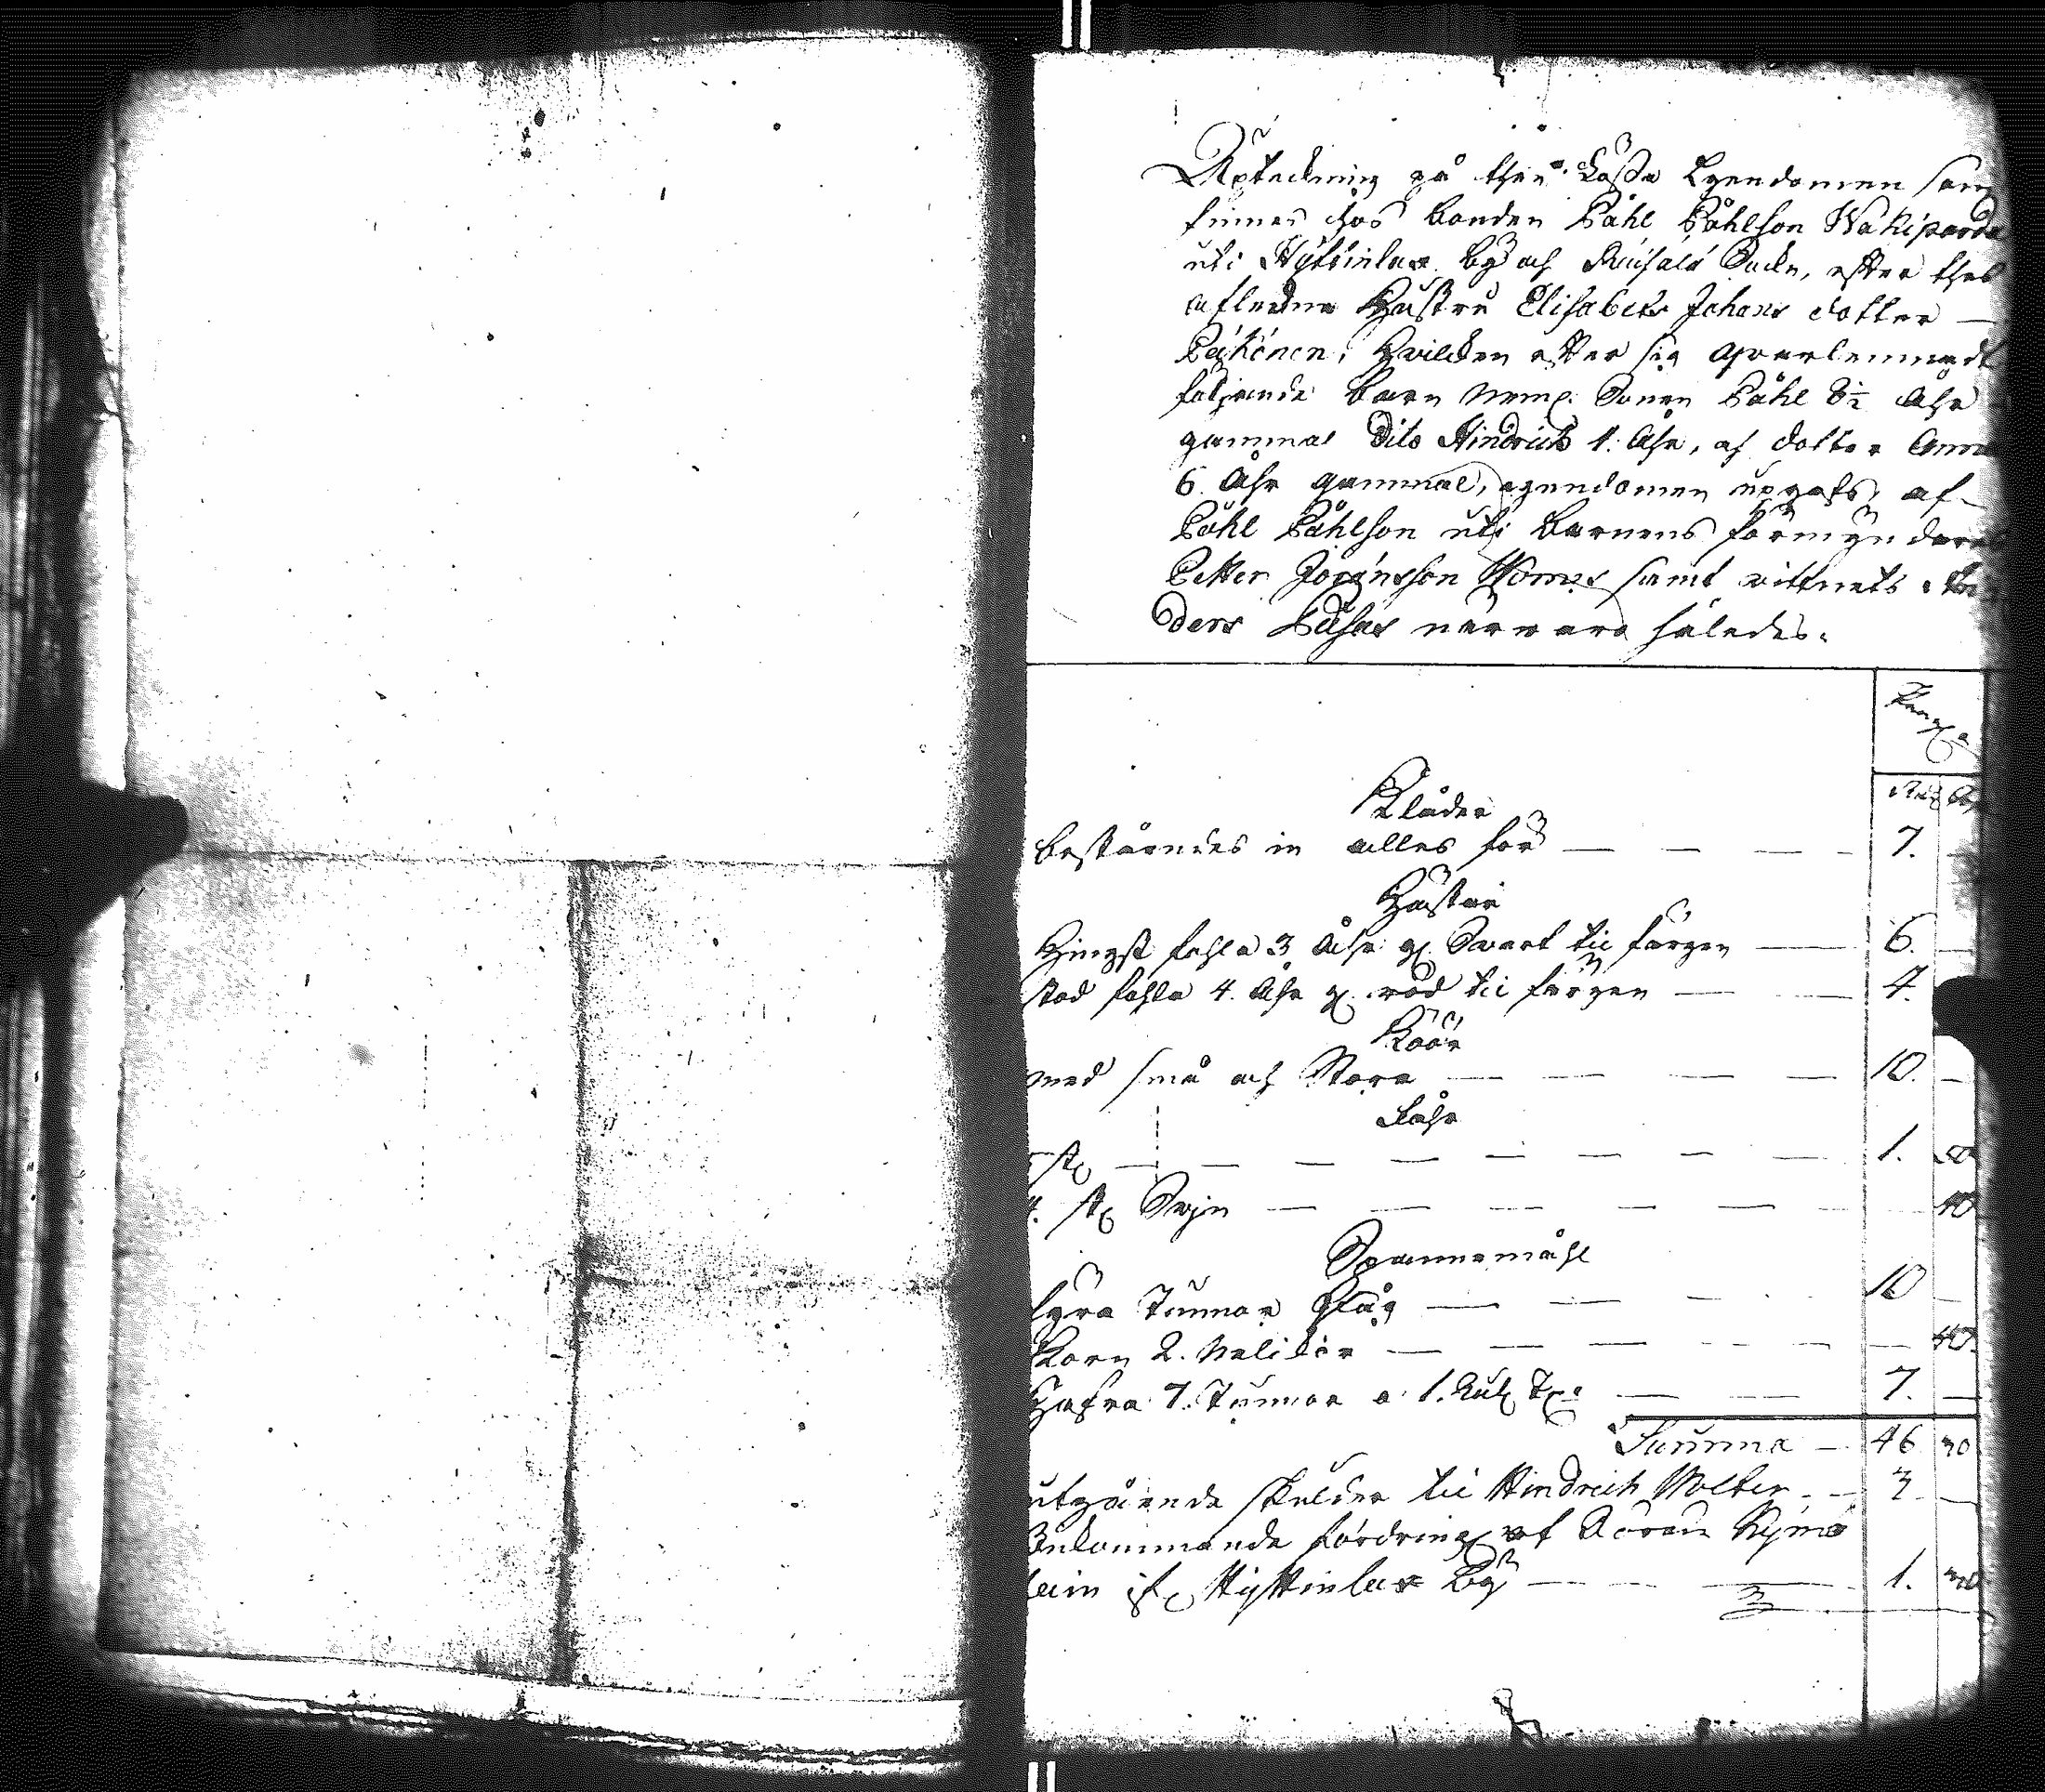 Uptechning på then Lösa Egendomen som
finnes hos bonden Påhl Påhlson Wakiparda
uti Hyttinlax by och Sochn, efter thes
aflednа Hustru Elisabeth Johans dotter —
Päkönen, hvilcken efter sig qvarlemnadt
följande barn neml. Sonen Påhl 8½ Åhr
gammal Dito Hindrich 1. Åhr, och dotter Anna
6 Åhr gammal, egendomen upgafs af
Påhl Påhlson uti barnens förmyndares
Petter Jöransson samt vittnets
ders närvaro således.
Kläder
bestående in alles för — — — — 7. —
Hästar
Hingst fohla 3 Åhr gl. Svart til färgen — 6. —
stod fohla 4. Åhr gl. röd til färgen — — 4.
Köör
med små och Stora — — — — 10. —
Fåhr
st. — — — — — — — — 1. 50
st. Svin — — — — — — 40
Spannemåhl
fyra Tunnor Råg — — — — 10 —
Korn 2. — — — — — 40.
Hafra 7. Tunnor a 1. Rub. T. — — 7. —
Summa — 46 30
utgående skulder til Hindrich Wolter — 3 —
Inkommande fordring af Göran
if. Hyttinlax by — — — 1. 30